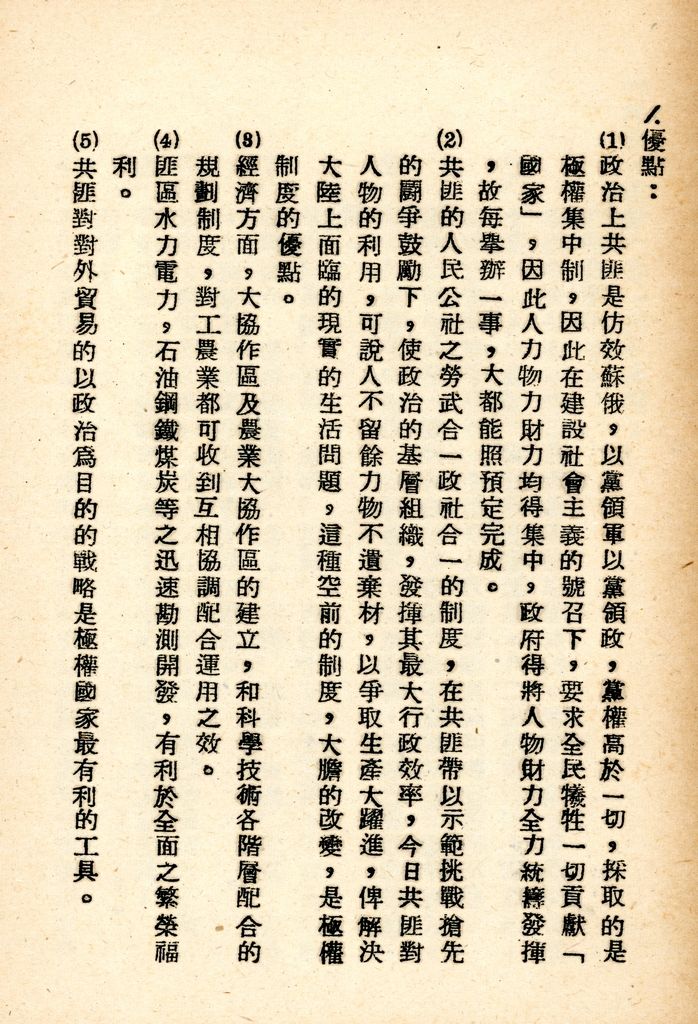 1.優點：
(1)政治上共匪是仿效蘇俄，以黨領軍以黨領政，黨權高於一切，採取的是
極權集中制，因此在建設社會主義的號召下，要求全民犧牲一切貢獻「
國家」，因此人力物力財力均得集中，政府得將人物財力全力統籌發揮
，故每舉辦一事，大都能照預定完成。
(2)共匪的人民公社之勞武合一政社合一的制度，在共匪帶以示範挑戰搶先
的鬪爭鼓勵下，使政治的基層組織，發揮其最大行政效率，今日共匪對
人物的利用，可說人不留餘力物不遺棄材，以爭取生產大躍進，俾解決
大陸上面臨的現實的生活問題，這種空前的制度，大膽的改變，是極權
制度的優點。
(3)經濟方面，大協作區及農業大協作區的建立，和科學技術各階層配合的
規劃制度，對工農業都可收到互相協調配合運用之效。
(4)匪區水力電力，石油鋼鐵煤炭等之迅速勘測開發，有利於全面之繁榮福
利。
(5)共匪對對外貿易的以政治爲目的的戰略是極權國家最有利的工具。